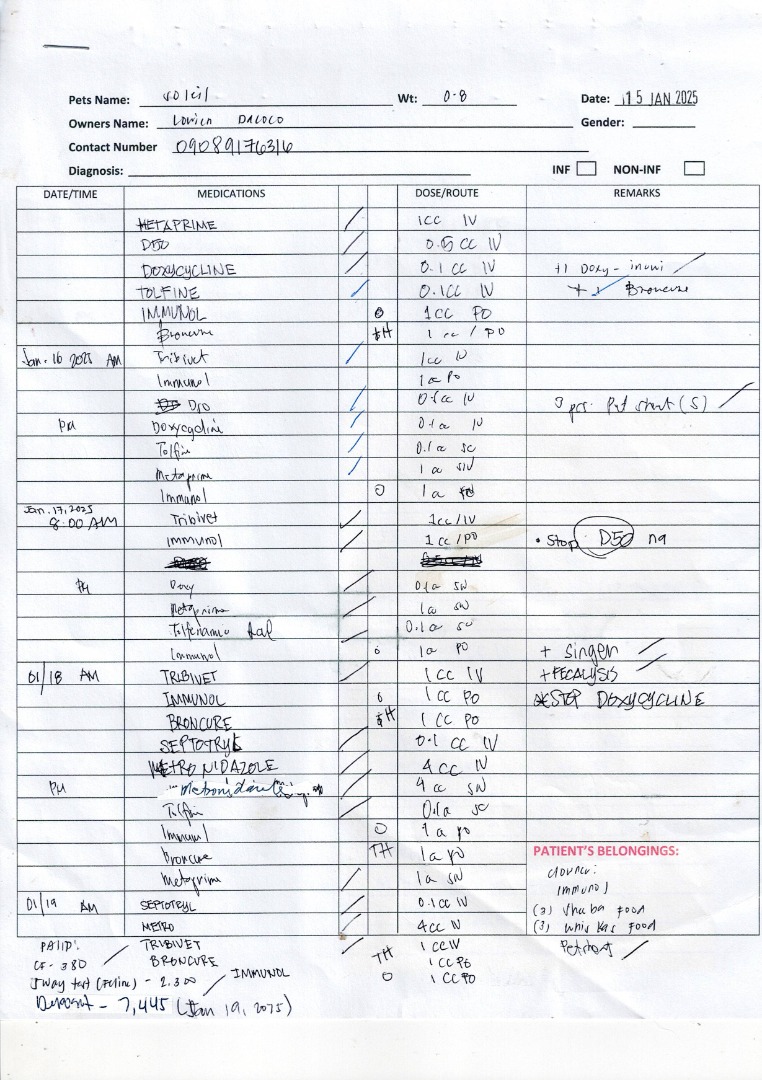 Pets Name: Soleil Wt: 0.8 Date: 15 JAN 2025
Owners Name: Gender:
Contact Number 09089176316
Diagnosis: INF NON-INF
DATE/TIME MEDICATIONS DOSE/ROUTE REMARKS
METAPRIME / 1CC IV
D50 / 0.5 CC IV
DOXYCYCLINE / 0.1 CC IV +1 Doxy - /
TOLFINE / 0.1CC IV + 1 Broncure
IMMUNOL O 1CC PO
Broncure TH 1 cc / PO
Jan. 16 2025 AM Tribivet / 1cc IV
Immunol 1cc PO
D50 / 0.5cc IV 3 pcs. Pet sheet (S) /
PM Doxycycline / 0.1cc IV
Tolfin / 0.1cc SC
Metaprime / 1cc SIV
Immunol O 1cc PO
Jan. 17, 2025
8:00 AM Tribivet / 1cc/IV
Immunol / 1cc/PO • Stop D50 na
PM Doxy / 0.1cc SIV
Metaprime / 1cc SIV
Tolfenamic / 0.1cc SC
Immunol o 1cc PO + singen /
01/18 AM TRIBIVET / 1 CC IV + FECALYSIS /
IMMUNOL o 1 CC PO STOP DOXYCYCLINE
BRONCURE TH 1 CC PO
SEPTOTRYL / 0.1 CC IV
METRONIDAZOLE / 4 CC IV
PM Metronidazole / 4 cc SIV
Tolfin / 0.1cc SC
Immunol O 1cc PO
Broncure TH 1cc PO PATIENT'S BELONGINGS:
Metaprime / 1cc SIV owner:
Immunol
01/19 AM SEPTOTRYL / 0.1CC IV (3) Sheba FOOD
METRO / 4CC IV (3) Whiskas FOOD
PAID: TRIBIVET / 1 CC IV Petsheet /
CF - 380 / BRONCURE TH 1 CC PO
3way test (Feline) - 2,300 / IMMUNOL O 1 CC PO
Deposit - 7,445 (Jan 19, 2025)